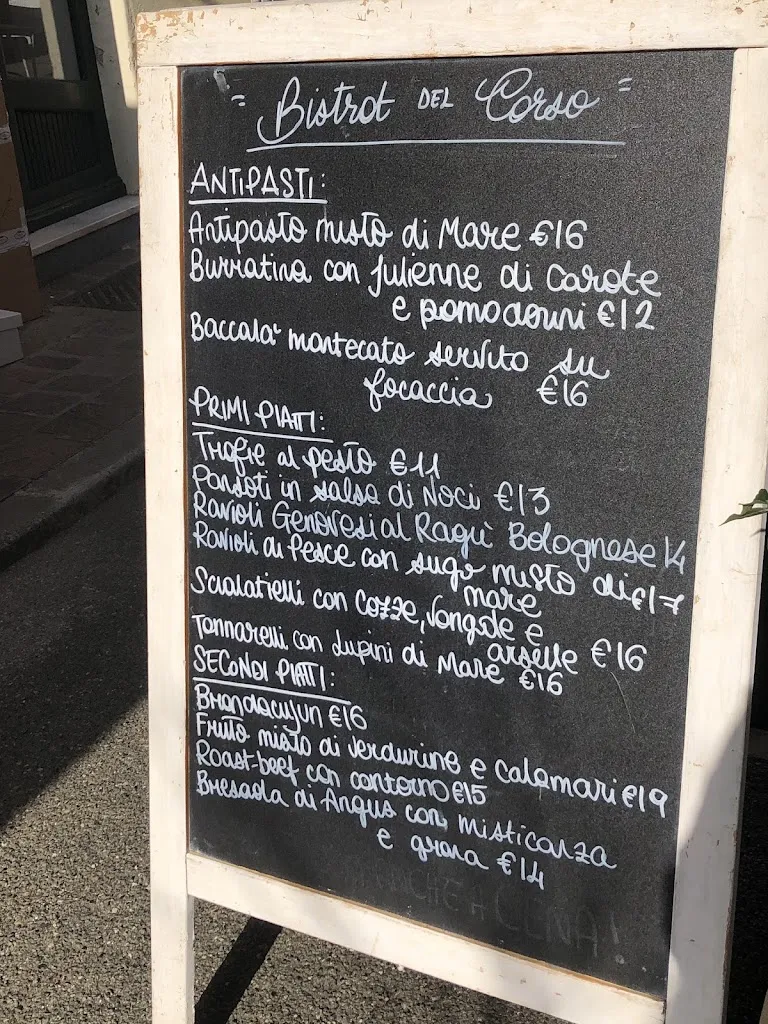 " Bistrot DEL Corso "
ANTIPASTI:
Antipasto misto di Mare €16
Burratina con Julienne di carote
e pomodorini €12
Baccala' mantecato servito su
focaccia €16
PRIMI PIATTI:
Trofie al pesto €11
Pansoti in salsa di Noci €13
Ravioli Genovesi al Ragù Bolognese 14
Ravioli di Pesce con sugo misto di €17
mare
Scialatielli con Cozze, Vongole e
arselle €16
Tonnarelli con Lupini di Mare €16
SECONDI PIATTI:
Brandacujun €16
Fritto misto di verdurine e calamari €19
Roast-beef con contorno €15
Bresaola di Angus con misticanza
e grana €14
ANCHE A CENA!